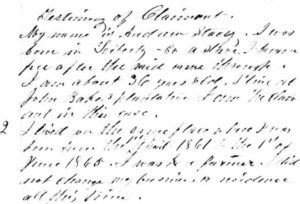 Testimony of Claimant.
My name is Andrew Stacy. I was
born in Liberty - Co a slave. I became
free after the raid came through.
I am about 36 years old. I live at
John Bakers plantation I am the claim
ant in this case.
2 I lived on the same place where I was
born from the 1st April 1861 to the 1st of
June 1865. I was a farmer. I did
not change my business or residence
all this time.